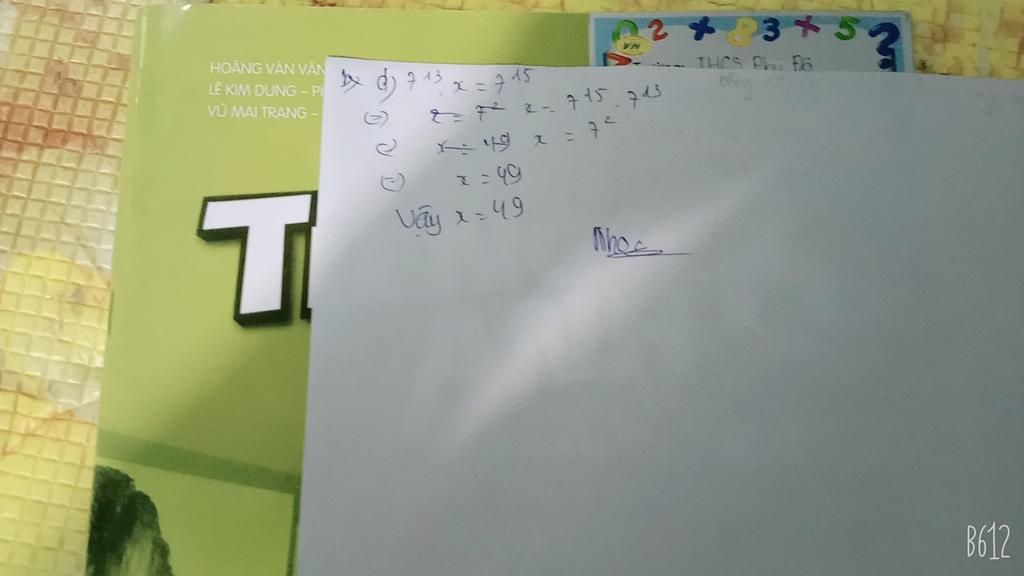 HOÀNG VĂN VÂN
LÊ KIM DUNG – P
VŨ MAI TRANG –
T
2 + 8 3 + 5 ?
THCS Phú Đô
d) 7^13 . x = 7^15
(=) x = 7^2 x = 7^15 . 7^13
x = 49 x = 7^2
(=) x = 49
Vậy x = 49
B612